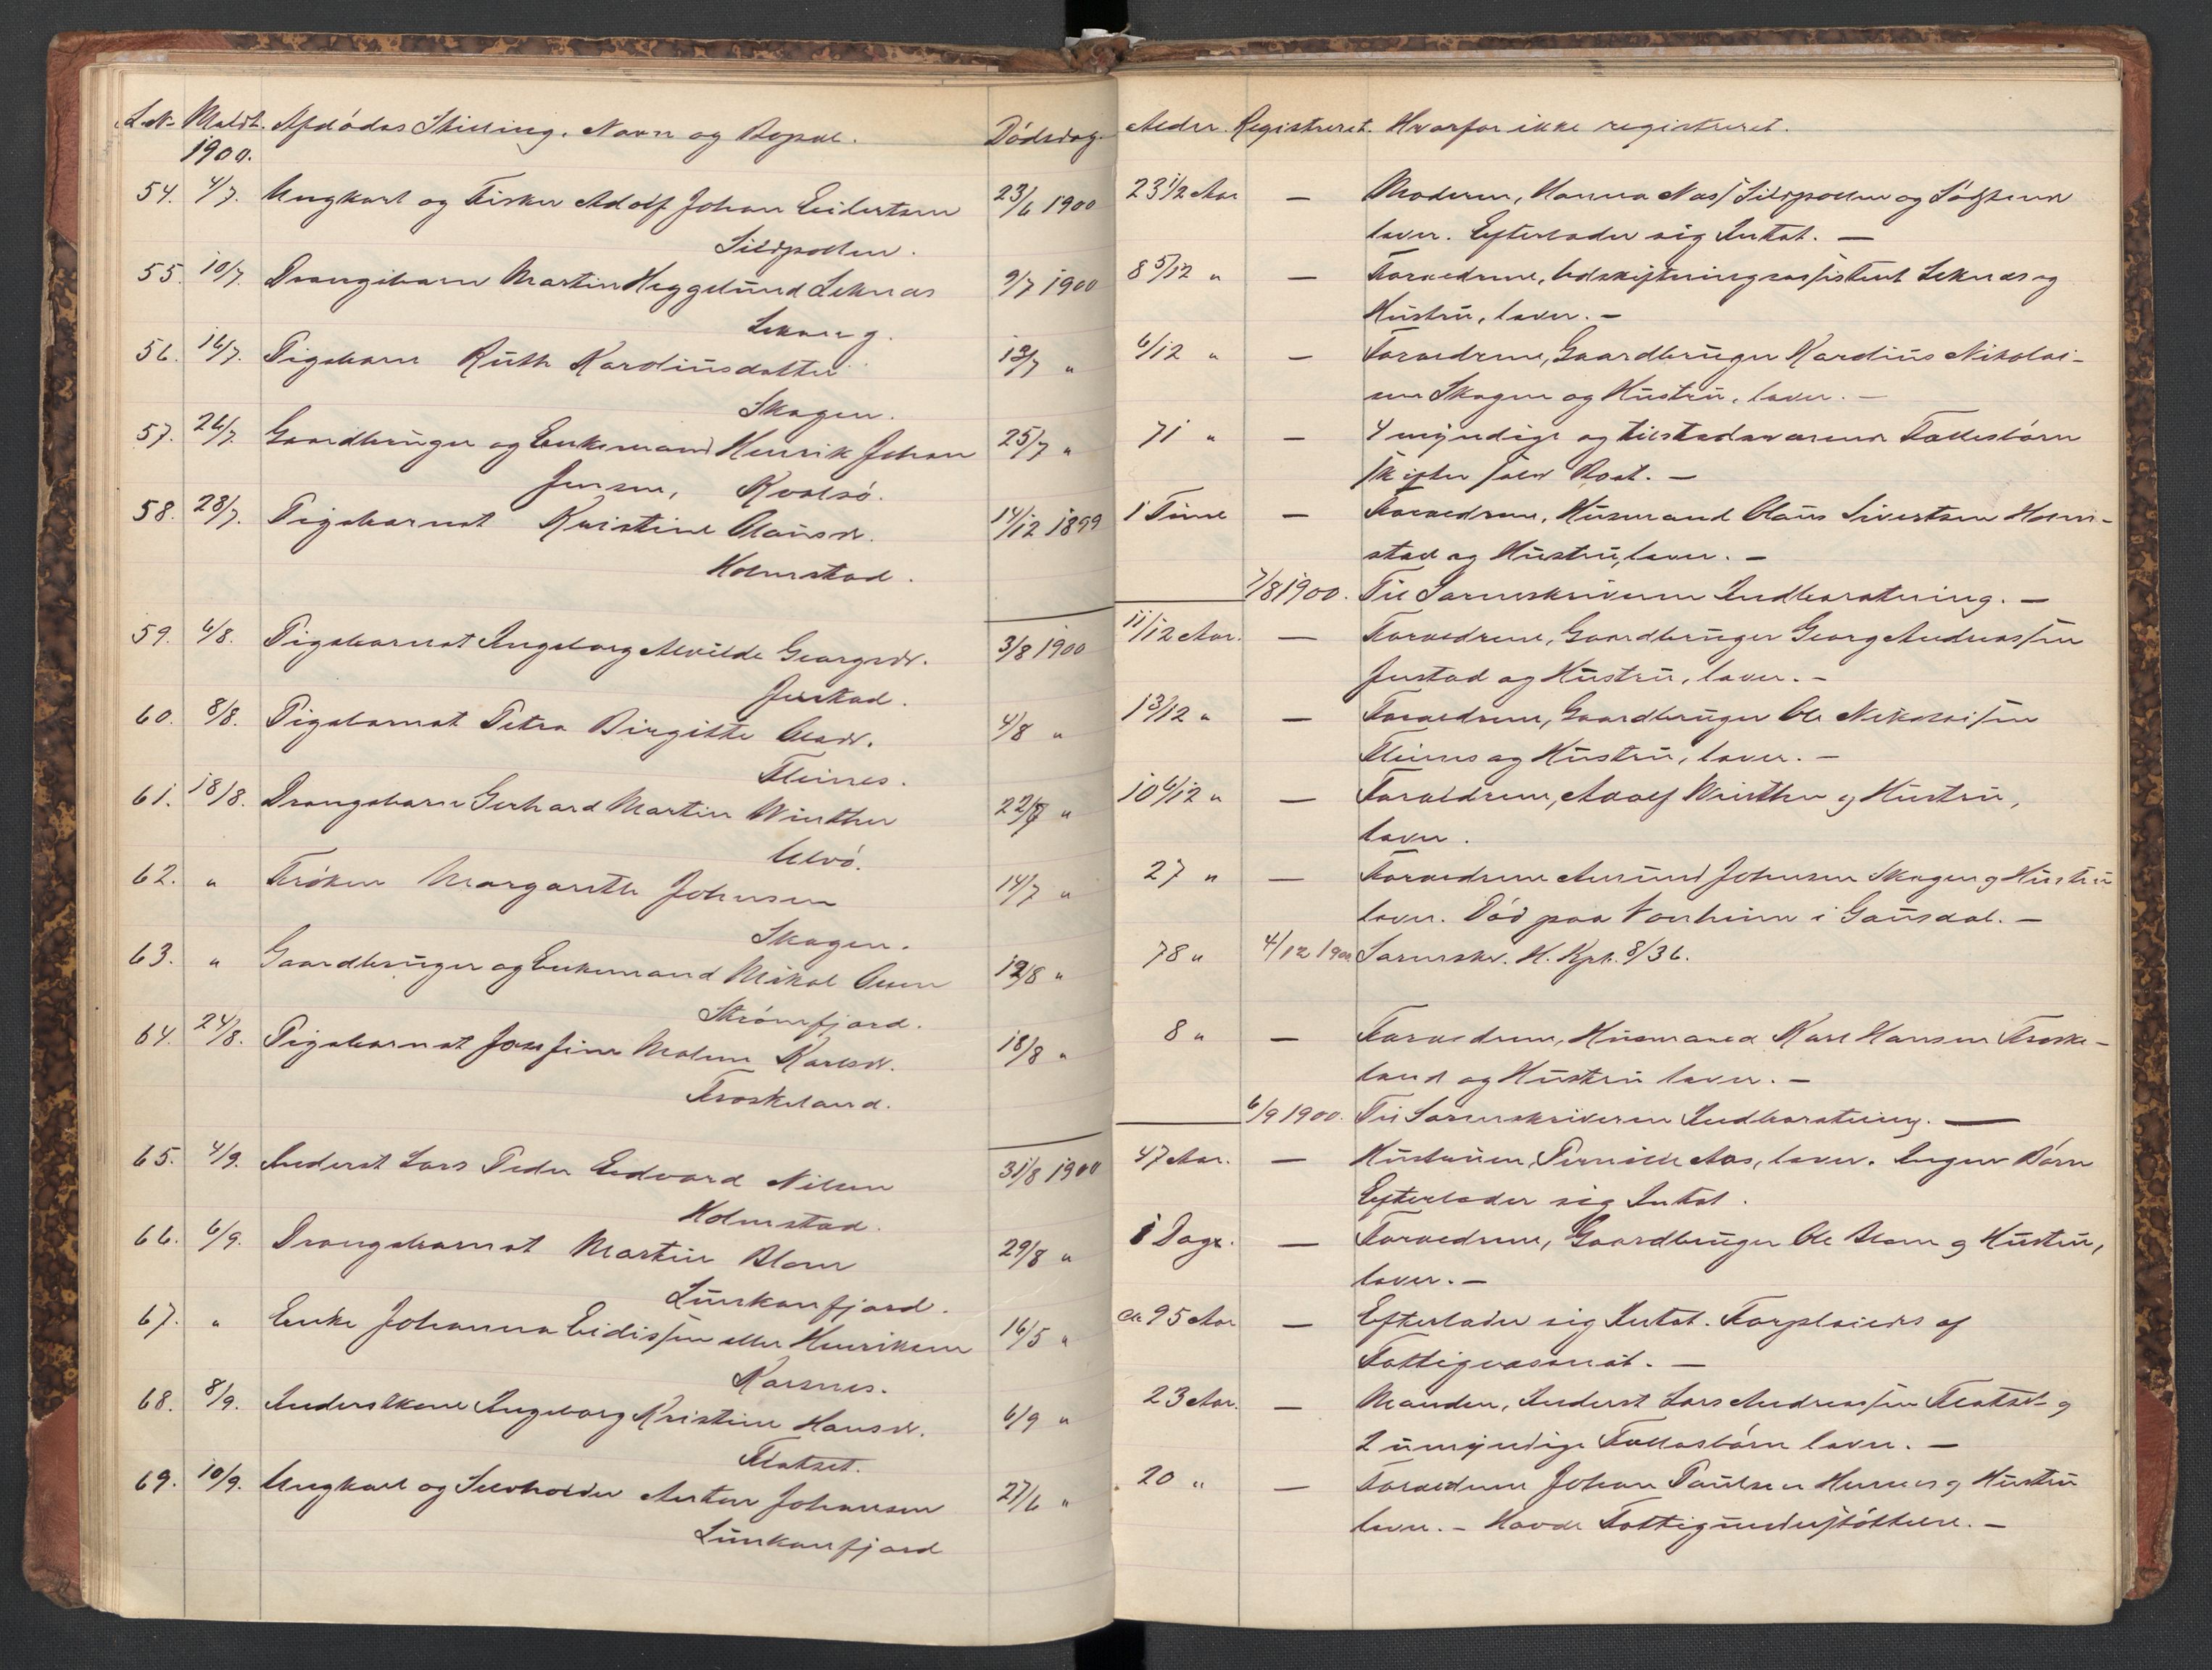 L.N. Meldt. Afdødes Stilling, Navn og Bopæl. Dødsdag. Alder. Registreret. Hvorfor ikke registreret.
1900.
54. 4/7. Ungkarl og Fisker Adolf Johan Eilertsen 23/6 1900 23 1/2 Aar — Moderen, Hanna Næs, Sildpollen og Sødskend
Sildpollen. lever. Efterlader sig Intet. —
55. 10/7. Drengebarn Martin Heggelund Leknæs 9/7 1900 8 5/12 " — Forældrene, Udskiftningsassistent Leknæs og
Hustru, lever. —
56. 16/7. Pigebarn Ruth Karoliusdatter 13/7 " 6/12 " — Forældrene, Gaardbruger Karolius Nikolai-
Skagen. sen Skagen og Hustru, lever. —
57. 26/7. Gaardbruger og Enkemand Henrik Johan 25/7 " 71 " — 4 myndige og tilstedeværende Fællesbørn
Jensen, Kvalsø. skifter selv Boet. —
58. 28/7. Pigebarnet Kristine Olausdr. 14/12 1899 1 Time — Forældrene, Husmand Olaus Sivertsen Holm-
Holmstad. stad og Hustru, lever. —
7/8 1900. Til Sorenskriveren Indberetning. —
59. 6/8. Pigebarnet Ingeborg Alvilde Georgsdr. 3/8 1900 11/12 Aar. — Forældrene, Gaardbruger Georg Andreassen
Jerstad. Jerstad og Hustru, lever. —
60. 8/8. Pigebarnet Petra Birgitte Olesdr. 4/8 " 1 3/12 " — Forældrene, Gaardbruger Ole Nikolaisen
Fleines. Fleines og Hustru, lever. —
61. 18/8. Drengebarn Gerhard Martin Winther 22/7 " 10 6/12 " — Forældrene, Adolf Winther og Hustru,
Ulvø. lever.
62. " Frøken Margarethe Johnsen 14/7 " 27 " — Forældrene Amund Johnsen Skagen og Hustru
Skagen. lever. Død paa Tonheim i Gausdal. —
63. " Gaardbruger og Enkemand Mikal Olsen 12/8 " 78 " 4/12 1900 Sorenskr. H. Kpt. 8/36.
Strømfjord.
64. 24/8. Pigebarnet Josefine Malene Karlsdr. 18/8 " 8 " — Forældrene, Husmand Karl Hansen Froske-
Froskeland. land og Hustru lever. —
6/9 1900. Til Sorenskriveren Indberetning. —
65. 4/9. Inderst Lars Peder Edvard Nilsen 31/8 1900 47 Aar. — Hustruen, Pernille Aas, lever. Ingen Børn
Holmstad. Efterlader sig Intet.
66. 6/9. Drengebarnet Martin Blom 29/8 " 8 Dage. — Forældrene, Gaardbruger Ole Blom og Hustru,
Lunkanfjord. lever. —
67. " Enke Johanna Eidissen eller Henriksen 16/5 " ca 95 Aar — Efterlader sig Intet. Forpleiedes af
Karsnes. Fattigvæsenet. —
68. 8/9. Inderstkone Ingeborg Kristine Hansdr. 6/9 " 23 Aar. — Manden, Inderst Lars Andreassen Flatset og
Flatset. 2 umyndige Fællesbørn lever. —
69. 10/9. Ungkarl og Selvholder Anton Johansen 27/6 " 20 " — Forældrene Johan Paulsen og Hustru
Lunkanfjord lever. — Havde Fattigunderstøttelse. —